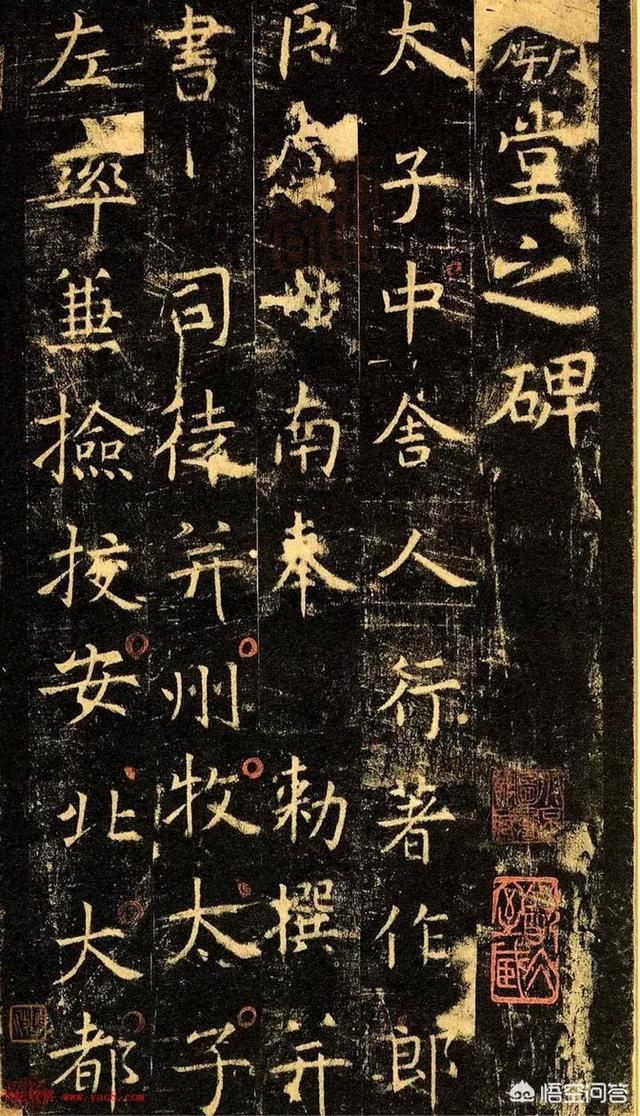 堂之碑
太子中舍人行著作郎
臣虞世南奉 勅撰并
書 司徒并州牧太子
左率兼撿挍安北大都
悟空问答